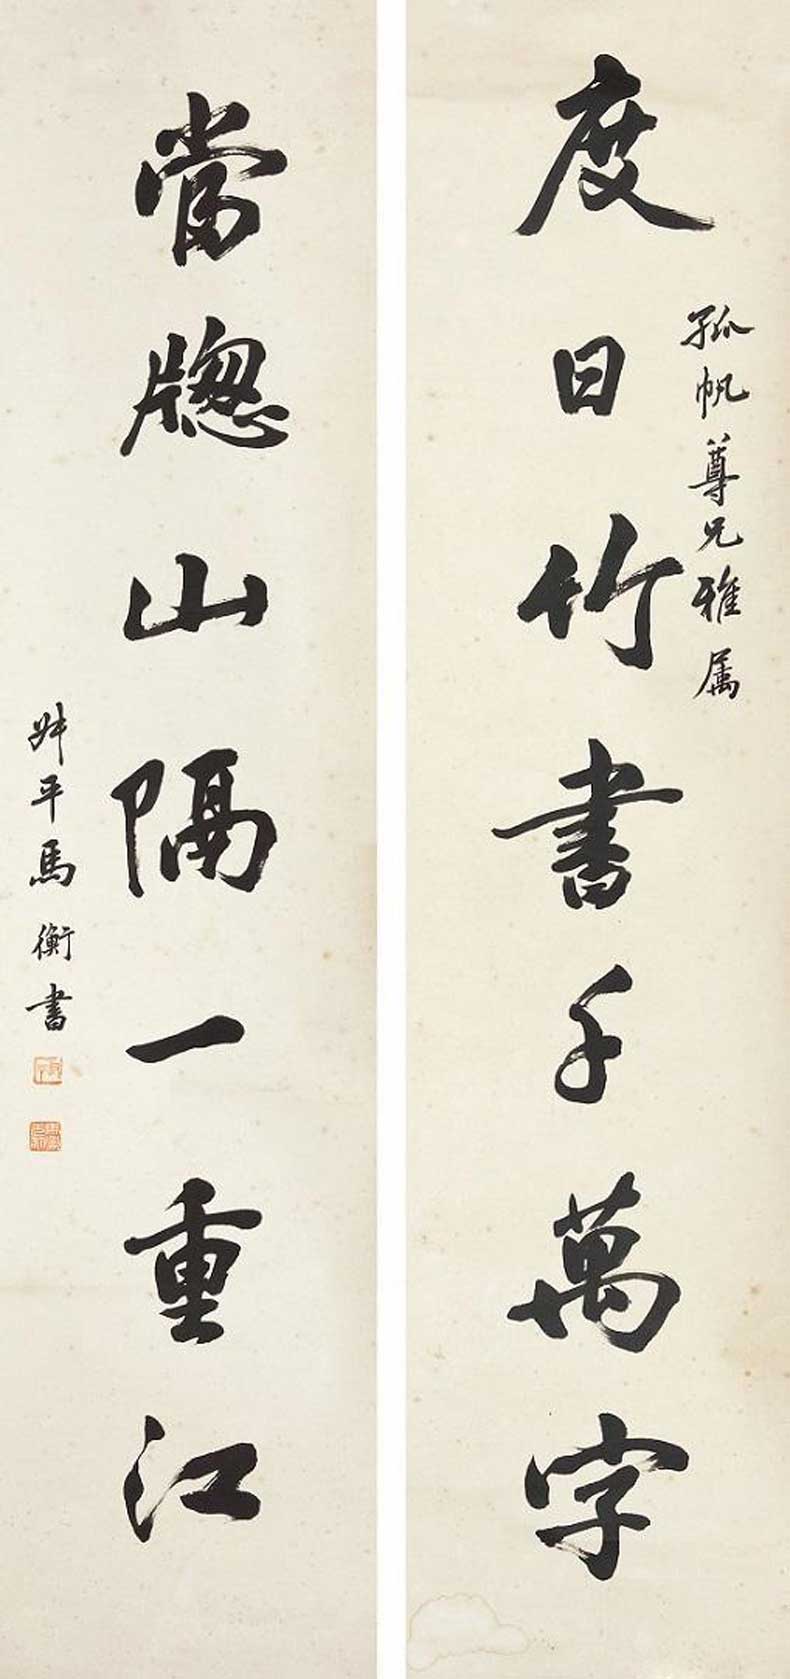 孤帆尊兄雅属
度日竹書千萬字
當牕山隔一重江
叔平馬衡書